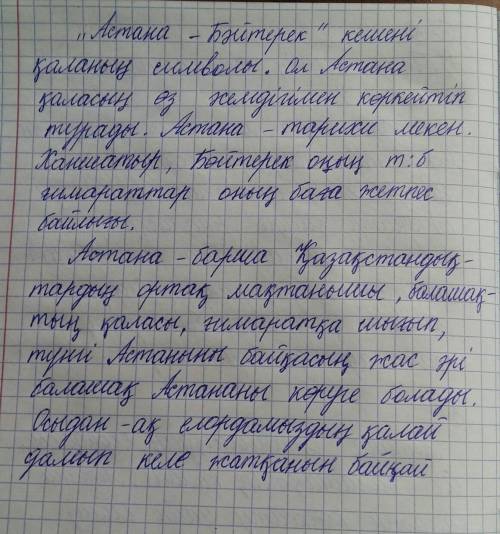 „Астана – Бәйтерек" кешені
қаланың символы. Ол Астана
қаласың өз жемдігімен көркейтіп
тұрады. Астана – тарихи мекен.
Ханшатыр, Бәйтерек оның т:б
ғимараттар оның баға жетпес
байлығы.
Астана – барша Қазақстандық-
тардың ортақ мақтанышы, болашақ-
тың қаласы, ғимаратқа шығып,
түнгі Астананы байқасың жас әрі
болашақ Астананы көруге болады.
Осыдан-ақ елордамыздың қалай
дамып келе жатқанын байқай